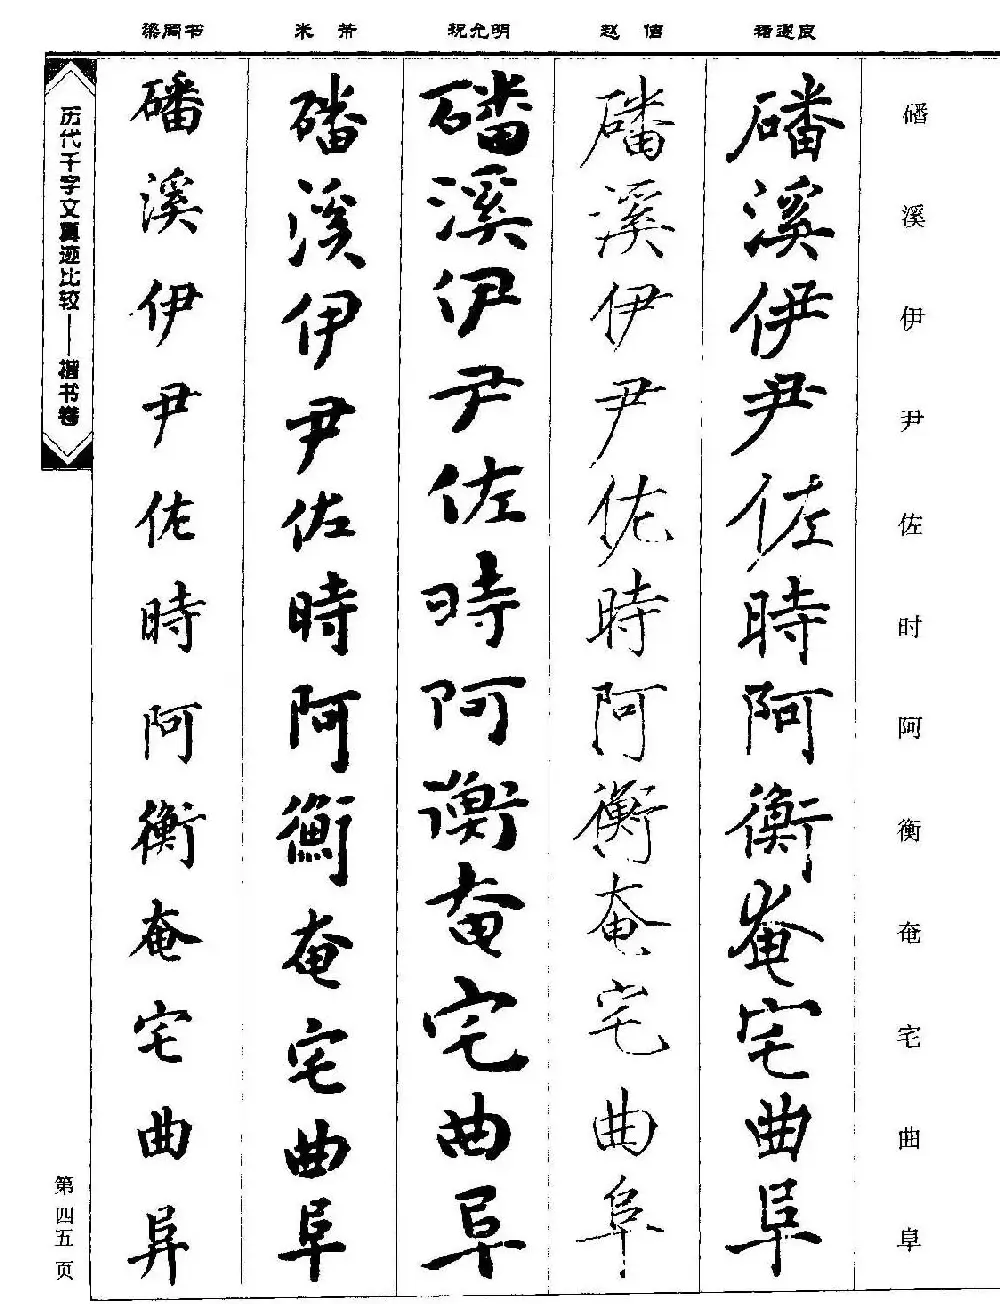 磻溪伊尹佐时阿衡奄宅曲阜
褚遂良
磻溪伊尹佐時阿衡奄宅曲阜
赵佶
磻溪伊尹佐時阿衡奄宅曲阜
祝允明
磻溪伊尹佐時阿衡奄宅曲阜
米芾
磻溪伊尹佐時阿衡奄宅曲阜
梁同书
磻溪伊尹佐時阿衡奄宅曲阜
历代千字文真迹比较——楷书卷
第四五页